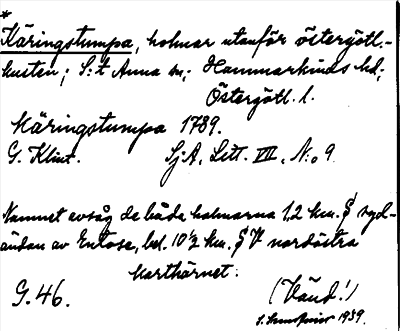 *
Käringstumpa, holmar utanför östergötl.-
kusten; S:t Anna sn; Hammarkinds hd;
Östergötl. l.
Käringstumpa 1789.
G. Klint. Sj.A. Litt. VII, N:o 9
Namnet avsåg de båda holmarna 1,2 km. S syd-
ändan av Enlose, bel. 10 1/2 km. SV nordöstra
karthörnet.
G. 46. (Vänd!)
1939.